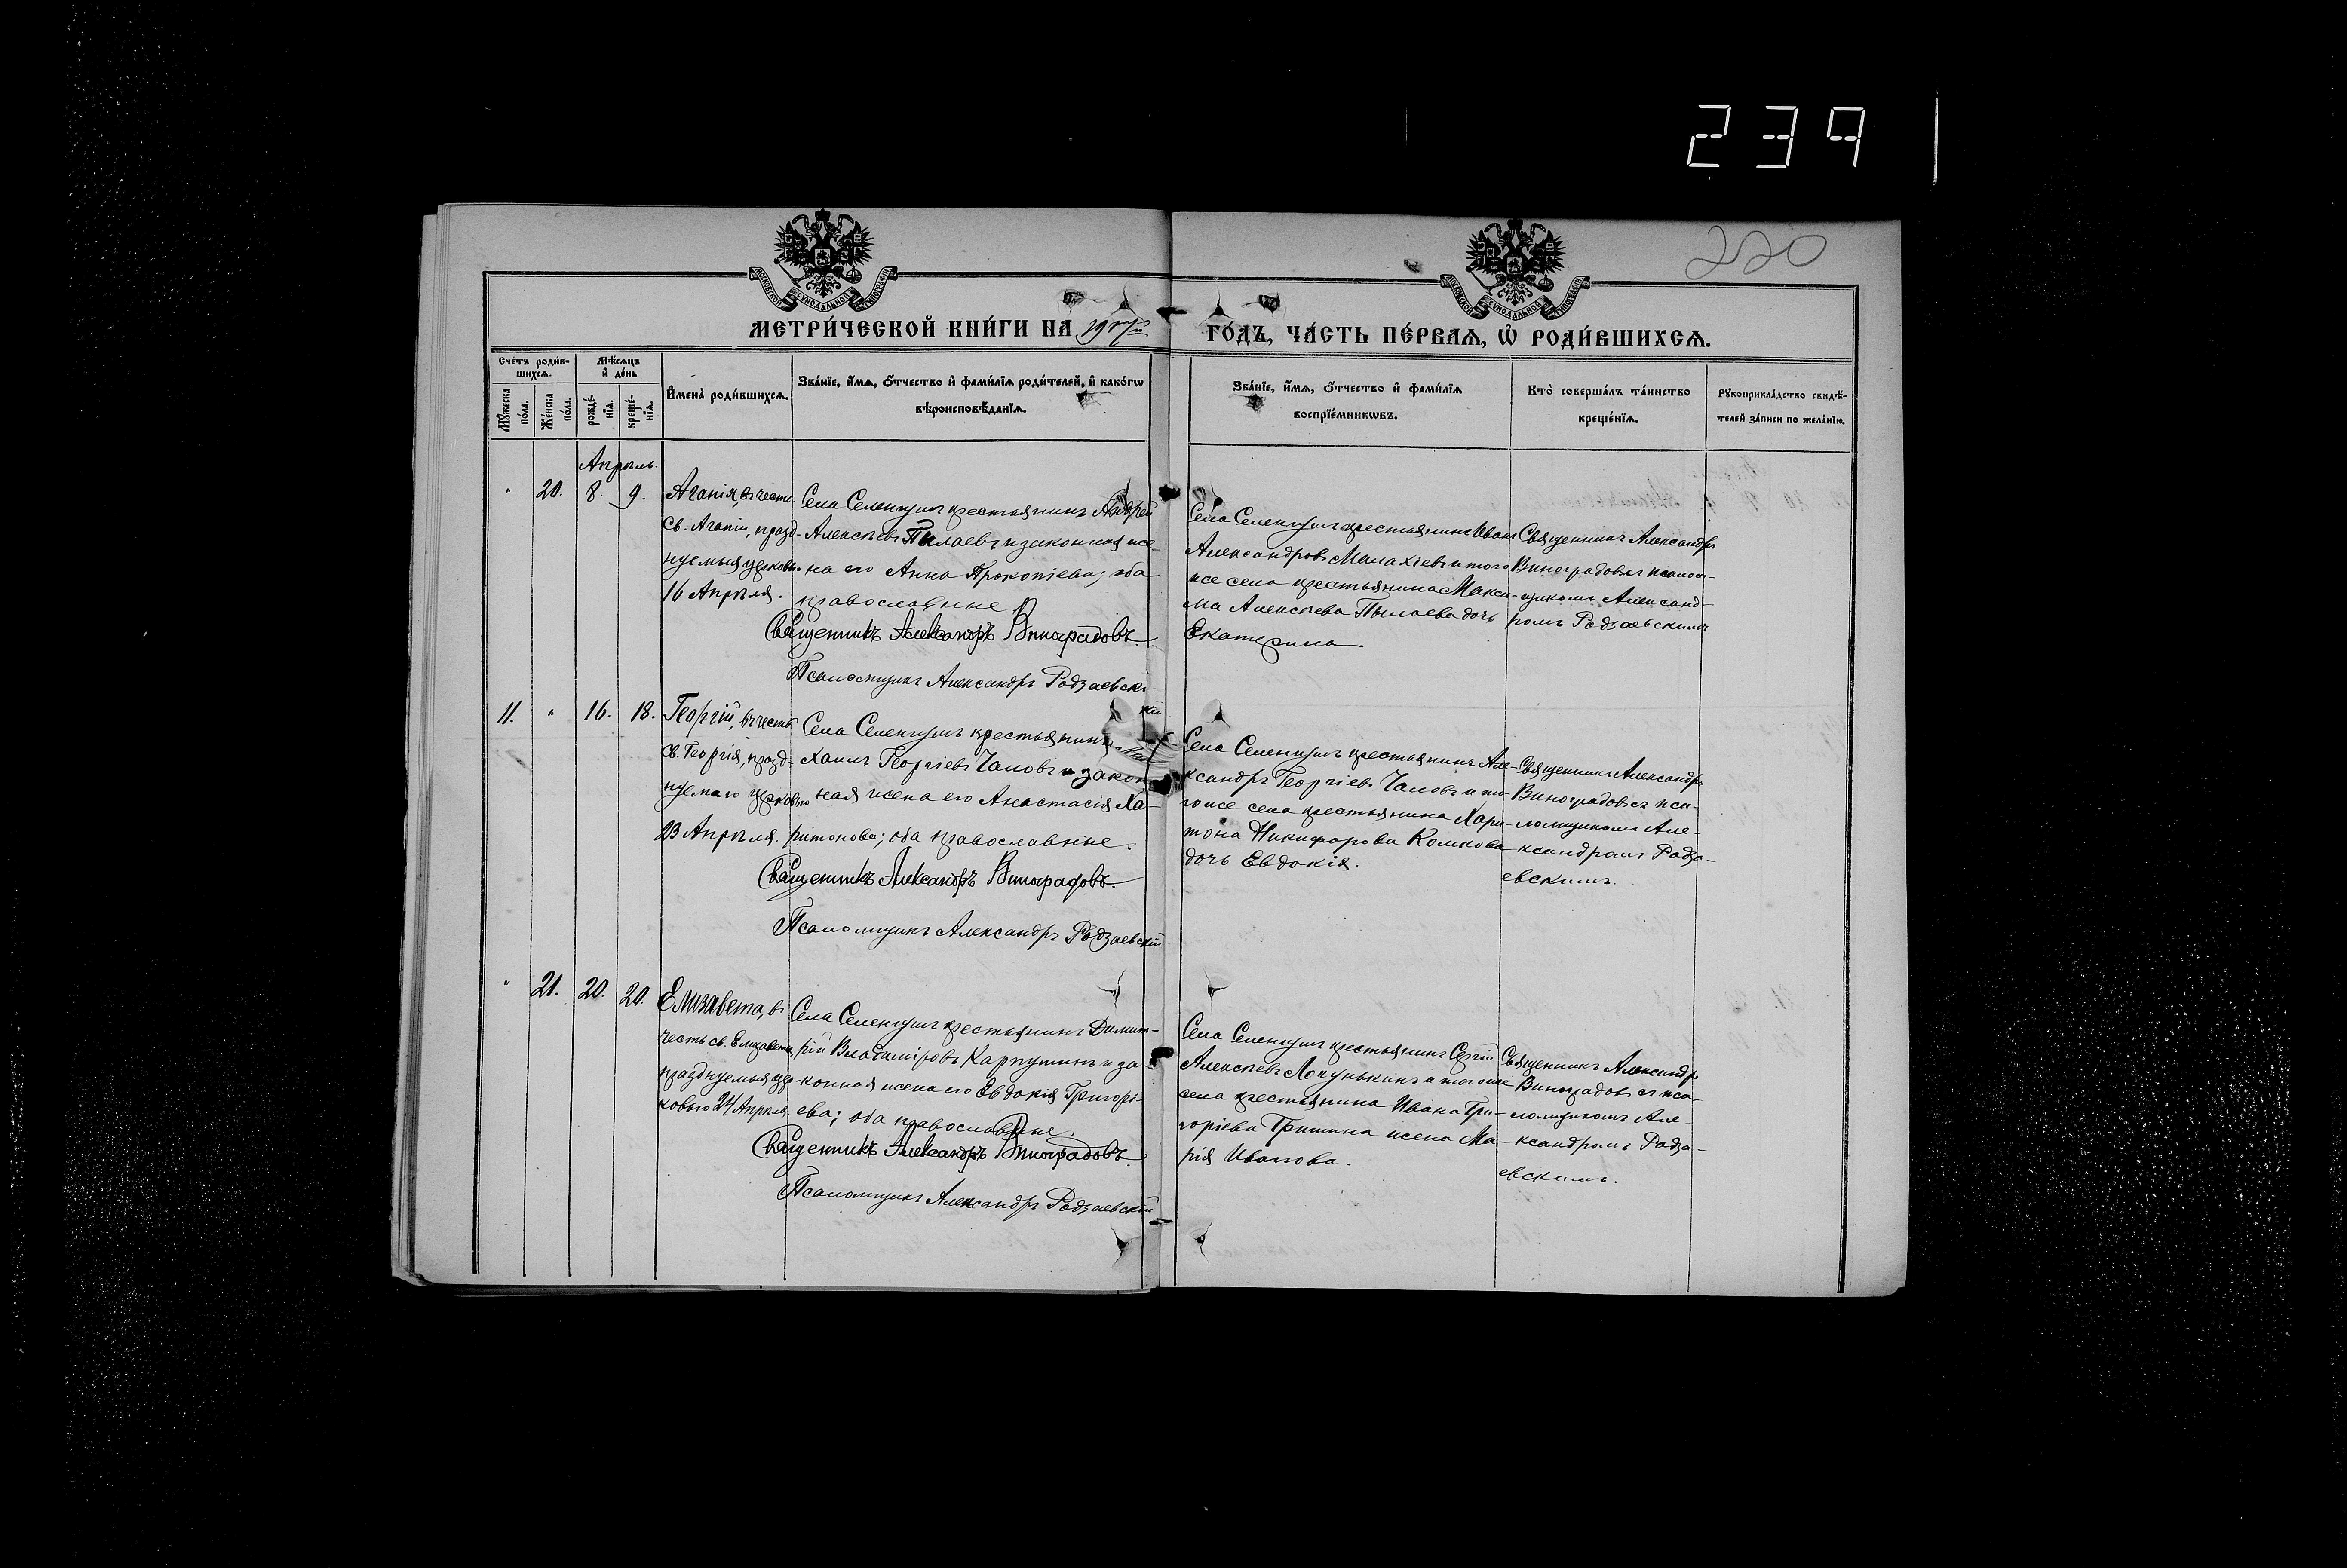 239
220
МОСКОВСКОЙ СѴНОДАЛЬНОЙ ТИПОГРАФІИ
МОСКОВСКОЙ СѴНОДАЛЬНОЙ ТИПОГРАФІИ
МЕТРИ́ЧЕСКОЙ КНИ́ГИ НА
ГО́ДЪ, ЧА́СТЬ ПЕ́РВАЯ, Ѡ҆ РОДИ́ВШИХСЯ.
Сче́тъ роди́в-
шихся.
Мѣ́сяцъ
и҆ де́нь
Мꙋ́жеска по́ла.
Же́нска по́ла.
рожде́-нїя.
креще́-нїя.
И҆мена̀ роди́вшихся.
Зва́нїе, и҆́мя, ѻ҆́тчество и҆ фами́лїя роди́телей, и҆ како́гѡ
вѣроисповѣ́данїя.
Зва́нїе, и҆́мя, ѻ҆́тчество и҆ фами́лїя
воспрїе́мникѡвъ.
Кто̀ соверша́лъ та́инство
креще́нїя.
Рꙋкоприкла́дство свидѣ́-
телей за́писи по жела́нїю.
Апрѣль.
" 20. 8. 9.
Агапія, въ честь
св. Агапіи, празд-
нуемыя церковью
16 Апрѣля.
Села Селенгушъ крестьянинъ Андрей
Алексѣевъ Пылаевъ и законная же-
на его Анна Прокопіева; оба
православные
Священникъ Александръ Виноградовъ.
Псаломщикъ Александръ Родзаевскі
Села Селенгушъ крестьянинъ Иванъ
Александровъ Малахіевъ и того
же села крестьянина Макси-
ма Алексѣева Пылаева дочь
Екатерина.
Священникъ Александръ
Виноградовъ съ псалом-
щикомъ Александ-
ромъ Родзаевскимъ
11. " 16. 18.
Георгій, въ честь
св. Георгія, празд-
нуемаго церковью
23 Апрѣля.
Села Селенгушъ крестьянинъ Ми-
хаилъ Георгіевъ Чамовъ и закон
ная жена его Анастасія Ха-
ритонова; оба православные.
Священникъ Александръ Виноградовъ.
Псаломщикъ Александръ Родзаевскій
Села Селенгушъ крестьянинъ Але-
ксандръ Георгіевъ Чамовъ и то-
гоже села крестьянина Хари-
тона Никифорова Комкова
дочь Евдокія.
Священникъ Александръ
Виноградовъ съ пса-
ломщикомъ Але-
ксандромъ Родза-
евскимъ.
" 21. 20. 20.
Елизавета, въ
честь св. Елизаветы,
празднуемыя цер-
ковью 24 Апрѣля
Села Селенгушъ крестьянинъ Димит-
рій Владиміровъ Карпушинъ и за-
конная жена его Евдокія Григорі-
ева; оба православные.
Священникъ Александръ Виноградовъ.
Псаломщикъ Александръ Родзаевскій
Села Селенгушъ крестьянинъ Сергій
Алексѣевъ и тогоже
села крестьянина Ивана Гри-
горіева Гришина жена Ма-
рія Иванова.
Священникъ Александръ
Виноградовъ съ пса-
ломщикомъ Але-
ксандромъ Родза-
евскимъ.